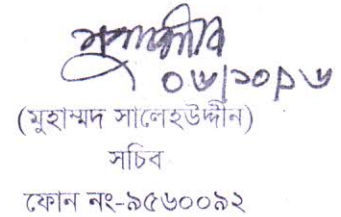 ০৬/১০/১৬
(মুহাম্মদ সালেহউদ্দীন)
সচিব
ফোন নং-৯৫৬০০৯২